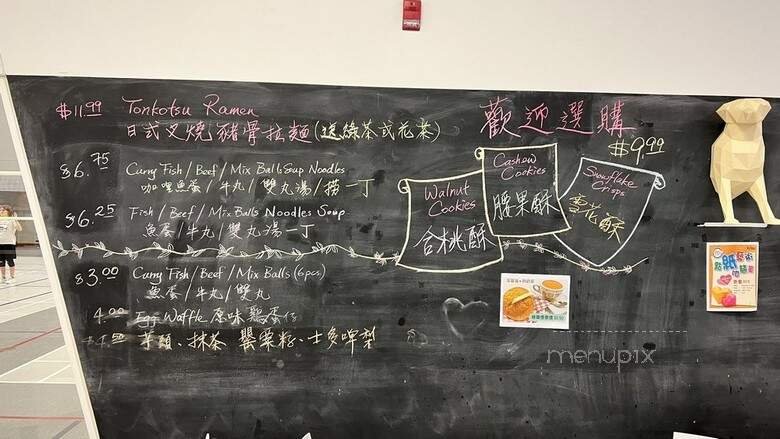 $11.99 Tonkotsu Ramen
日式叉燒豬骨拉麵(送綠茶或花茶)
$6.75 Curry Fish / Beef / Mix Ball Soup Noodles
咖哩魚蛋/牛丸/雙丸湯/撈一丁
$6.25 Fish / Beef / Mix Balls Noodles Soup
魚蛋/牛丸/雙丸湯一丁
$3.00 Curry Fish / Beef / Mix Balls (6pcs)
魚蛋/牛丸/雙丸
4.00 Egg Waffle 原味雞蛋仔
芋頭、抹茶、罌粟籽、士多啤梨
歡迎選購
$9.99
Walnut
Cookies
合桃酥
Cashew
Cookies
腰果酥
Snowflake
Crisps
雪花酥
menupix